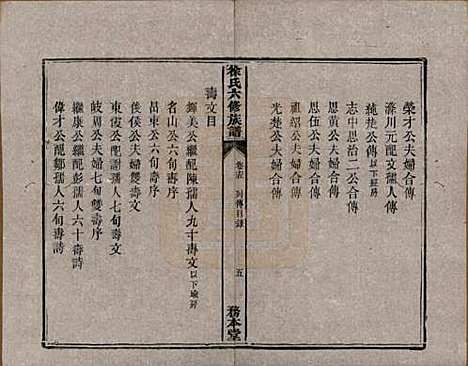 榮才公夫婦合傳
滌川元配文孺人傳
純楚公傳以下經房
志中思治二公合傳
思黃公夫婦合傳
思伍公夫婦合傳
祖紹公夫婦合傳
光楚公夫婦合傳
徐氏六修族譜
卷云 封傳目錄
五
務本堂
壽文目
鐸美公繼配陳孺人九十壽文以下瑜房
名山公六旬壽序
昌東公六旬壽序
後侯公夫婦雙壽文
東俊公配謝孺人七旬壽文
岐周公夫婦七旬雙壽序
繼康公繼配彭孺人六十壽詩
偉才公配鄒孺人六旬壽詩